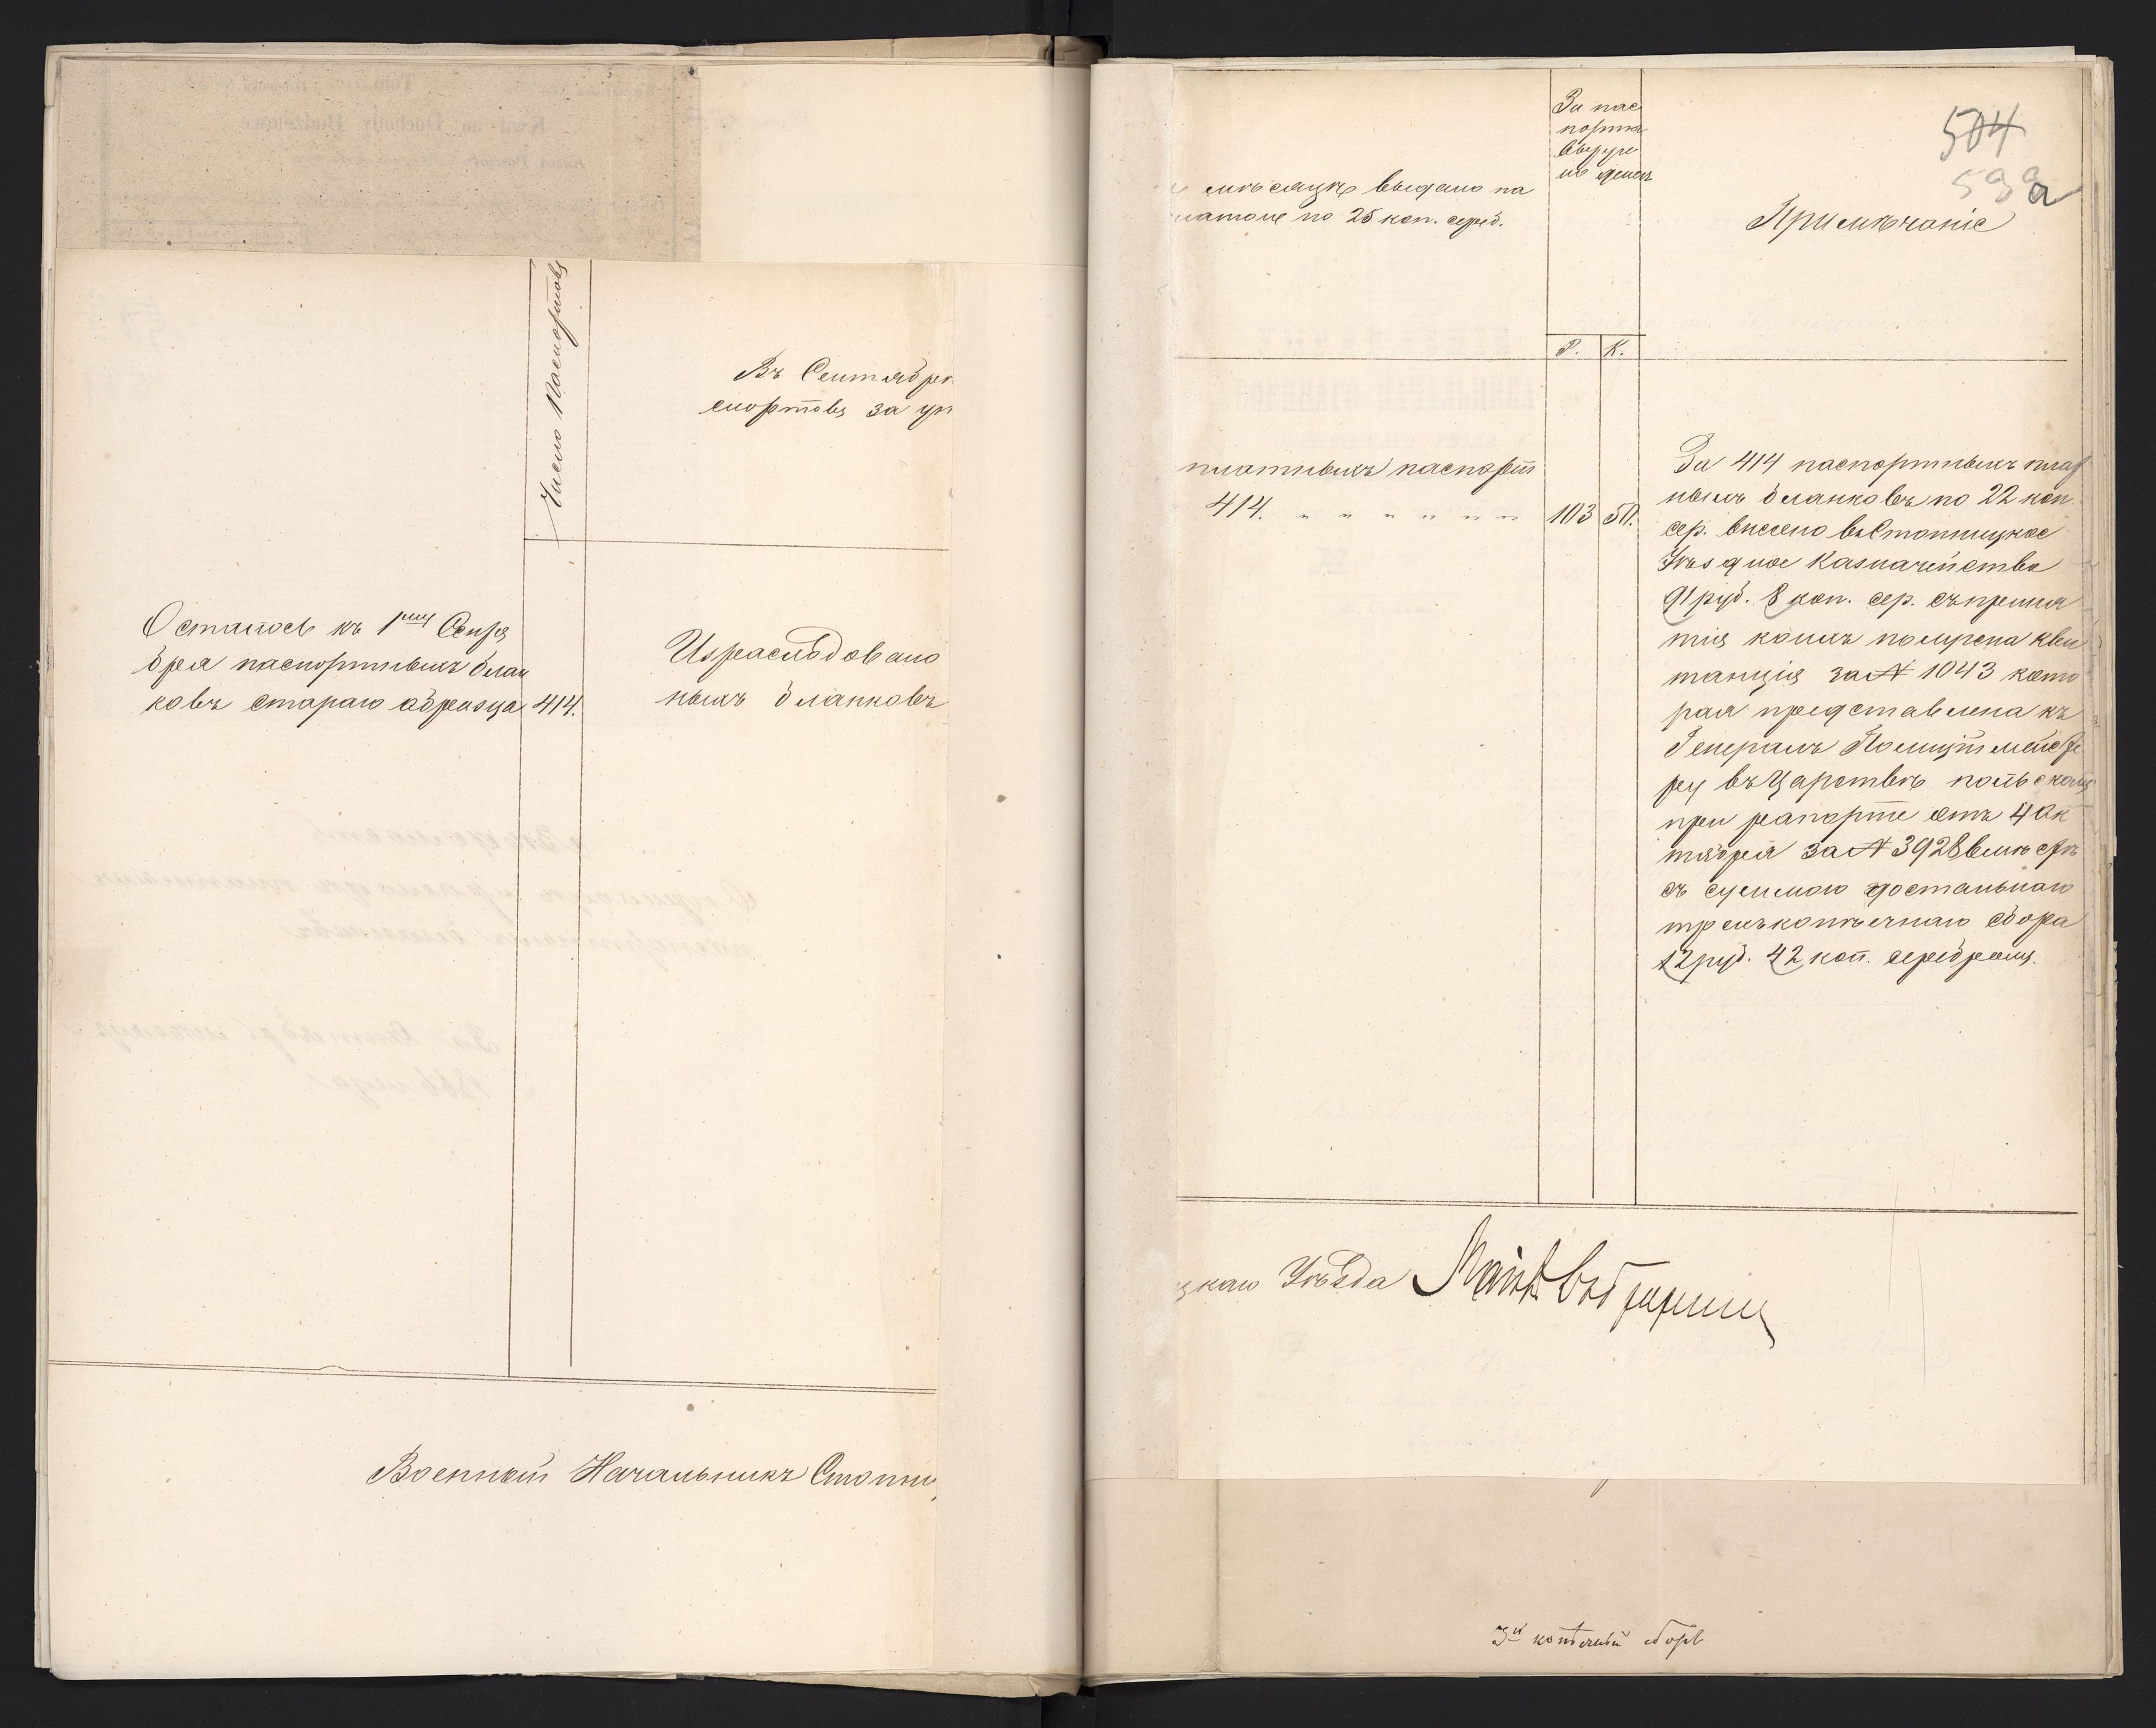 Число паспортовъ
Въ Сентябрѣ
спортовъ за уп
Осталось къ 1му Сентя
бря паспортныхъ блан
ковъ стараго образца 414.
Израсходовано
ныхъ бланковъ
Военный Начальникъ Стопни
мѣсяцѣ выдано па
платою по 25 коп. сереб.
За пас
порта
выруче
но денегъ
Р. К.
504
Примѣчаніе
платныхъ паспорт
414. " " " " " " " 103 50.
За 414 паспортныхъ плат
ныхъ бланковъ по 22 коп.
сер. внесено въ Стопницкое
Уѣздное Казначейство
91 руб. 8 коп. сер. съ приня
тія коихъ получена кви
танція за № 1043 кото
рая представлена къ
Генералъ Полиціймейсте
ру въ Царствѣ польскомъ
при рапорте отъ 4 Ок
тября за № 3928 вмѣстѣ
съ суммою достальнаго
трехъ копѣечнаго сбора
12 руб. 42 коп. серебромъ.
цкаго Уѣзда
3х копѣечный сборъ